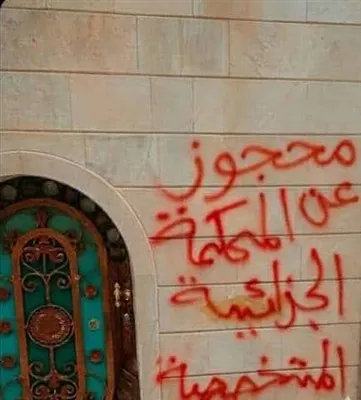 محجوز
عن المحكمة
الجزائية
المتخصصة